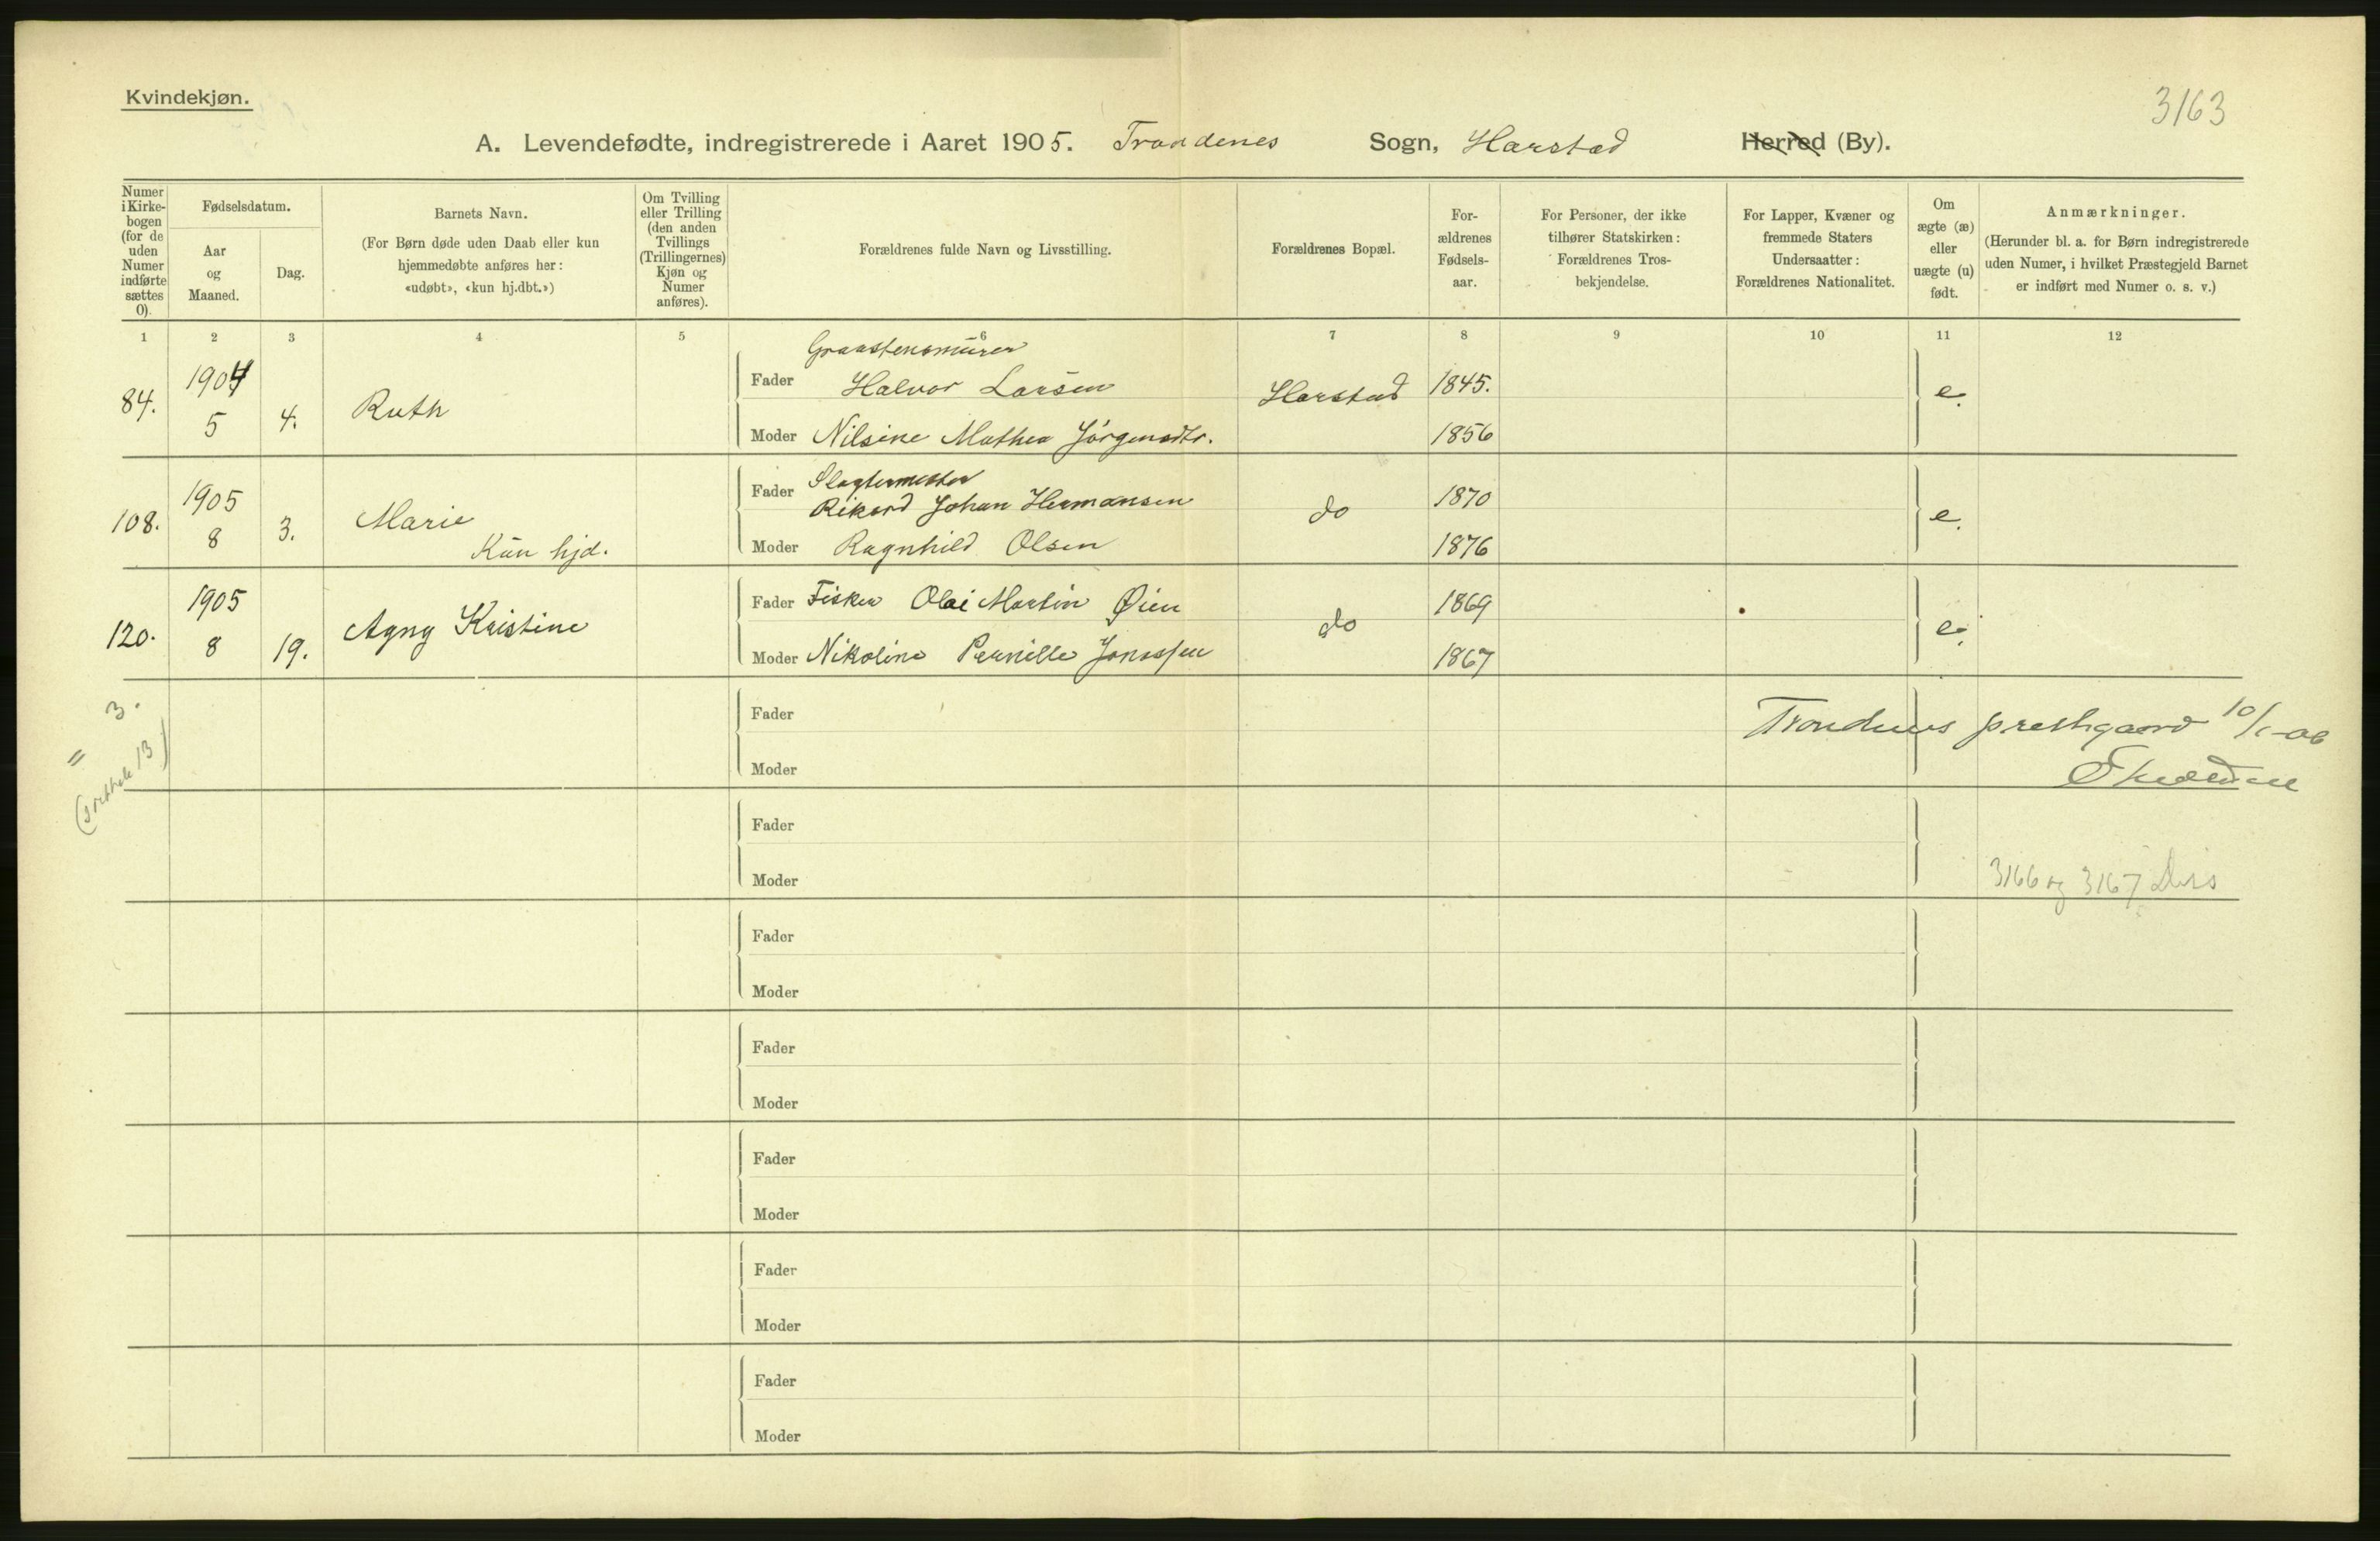 Kvindekjøn.
3163
A. Levendefødte, indregistrerede i Aaret 1905. Trondenes Sogn, Harstad Herred (By).
Numer i Kirke-bogen (for de uden Numer indførte sættes 0).
Fødselsdatum.
Aar og Maaned.
Dag.
Barnets Navn.
(For Børn døde uden Daab eller kun
hjemmedøbte anføres her:
«udøbt», «kun hj.dbt.»)
Om Tvilling
eller Trilling
(den anden
Tvillings
(Trillingernes)
Kjøn og
Numer
anføres).
Forældrenes fulde Navn og Livsstilling.
Forældrenes Bopæl.
For-
ældrenes
Fødsels-
aar.
For Personer, der ikke
tilhører Statskirken:
Forældrenes Tros-
bekjendelse.
For Lapper, Kvæner og
fremmede Staters
Undersaatter:
Forældrenes Nationalitet.
Om
ægte (æ)
eller
uægte (u)
født.
Anmærkninger.
(Herunder bl. a. for Børn indregistrerede
uden Numer, i hvilket Præstegjeld Barnet
er indført med Numer o. s. v.)
1 2 3 4 5 6 7 8 9 10 11 12
Graastensmurer
84. 1904 5 4. Ruth Fader Halvor Larsen Harstad 1845. e.
Moder Nilsine Mathea Jörgensdtr. 1856
Slagtermester
108. 1905 8 3. Marie Fader Rikard Johan Hermansen do 1870 e.
Kun hjd. Moder Ragnhild Olsen 1876
120. 1905 8 19. Agny Kristine Fader Fisker Olai Martin Øien do 1869 e.
Moder Nikoline Pernille Jonassen 1867
= 3.
13)
Fader
Trondenes prestegaard 10/1-06
Moder
Fader
Moder
3166 og 3167
Fader
Moder
Fader
Moder
Fader
Moder
Fader
Moder
Fader
Moder